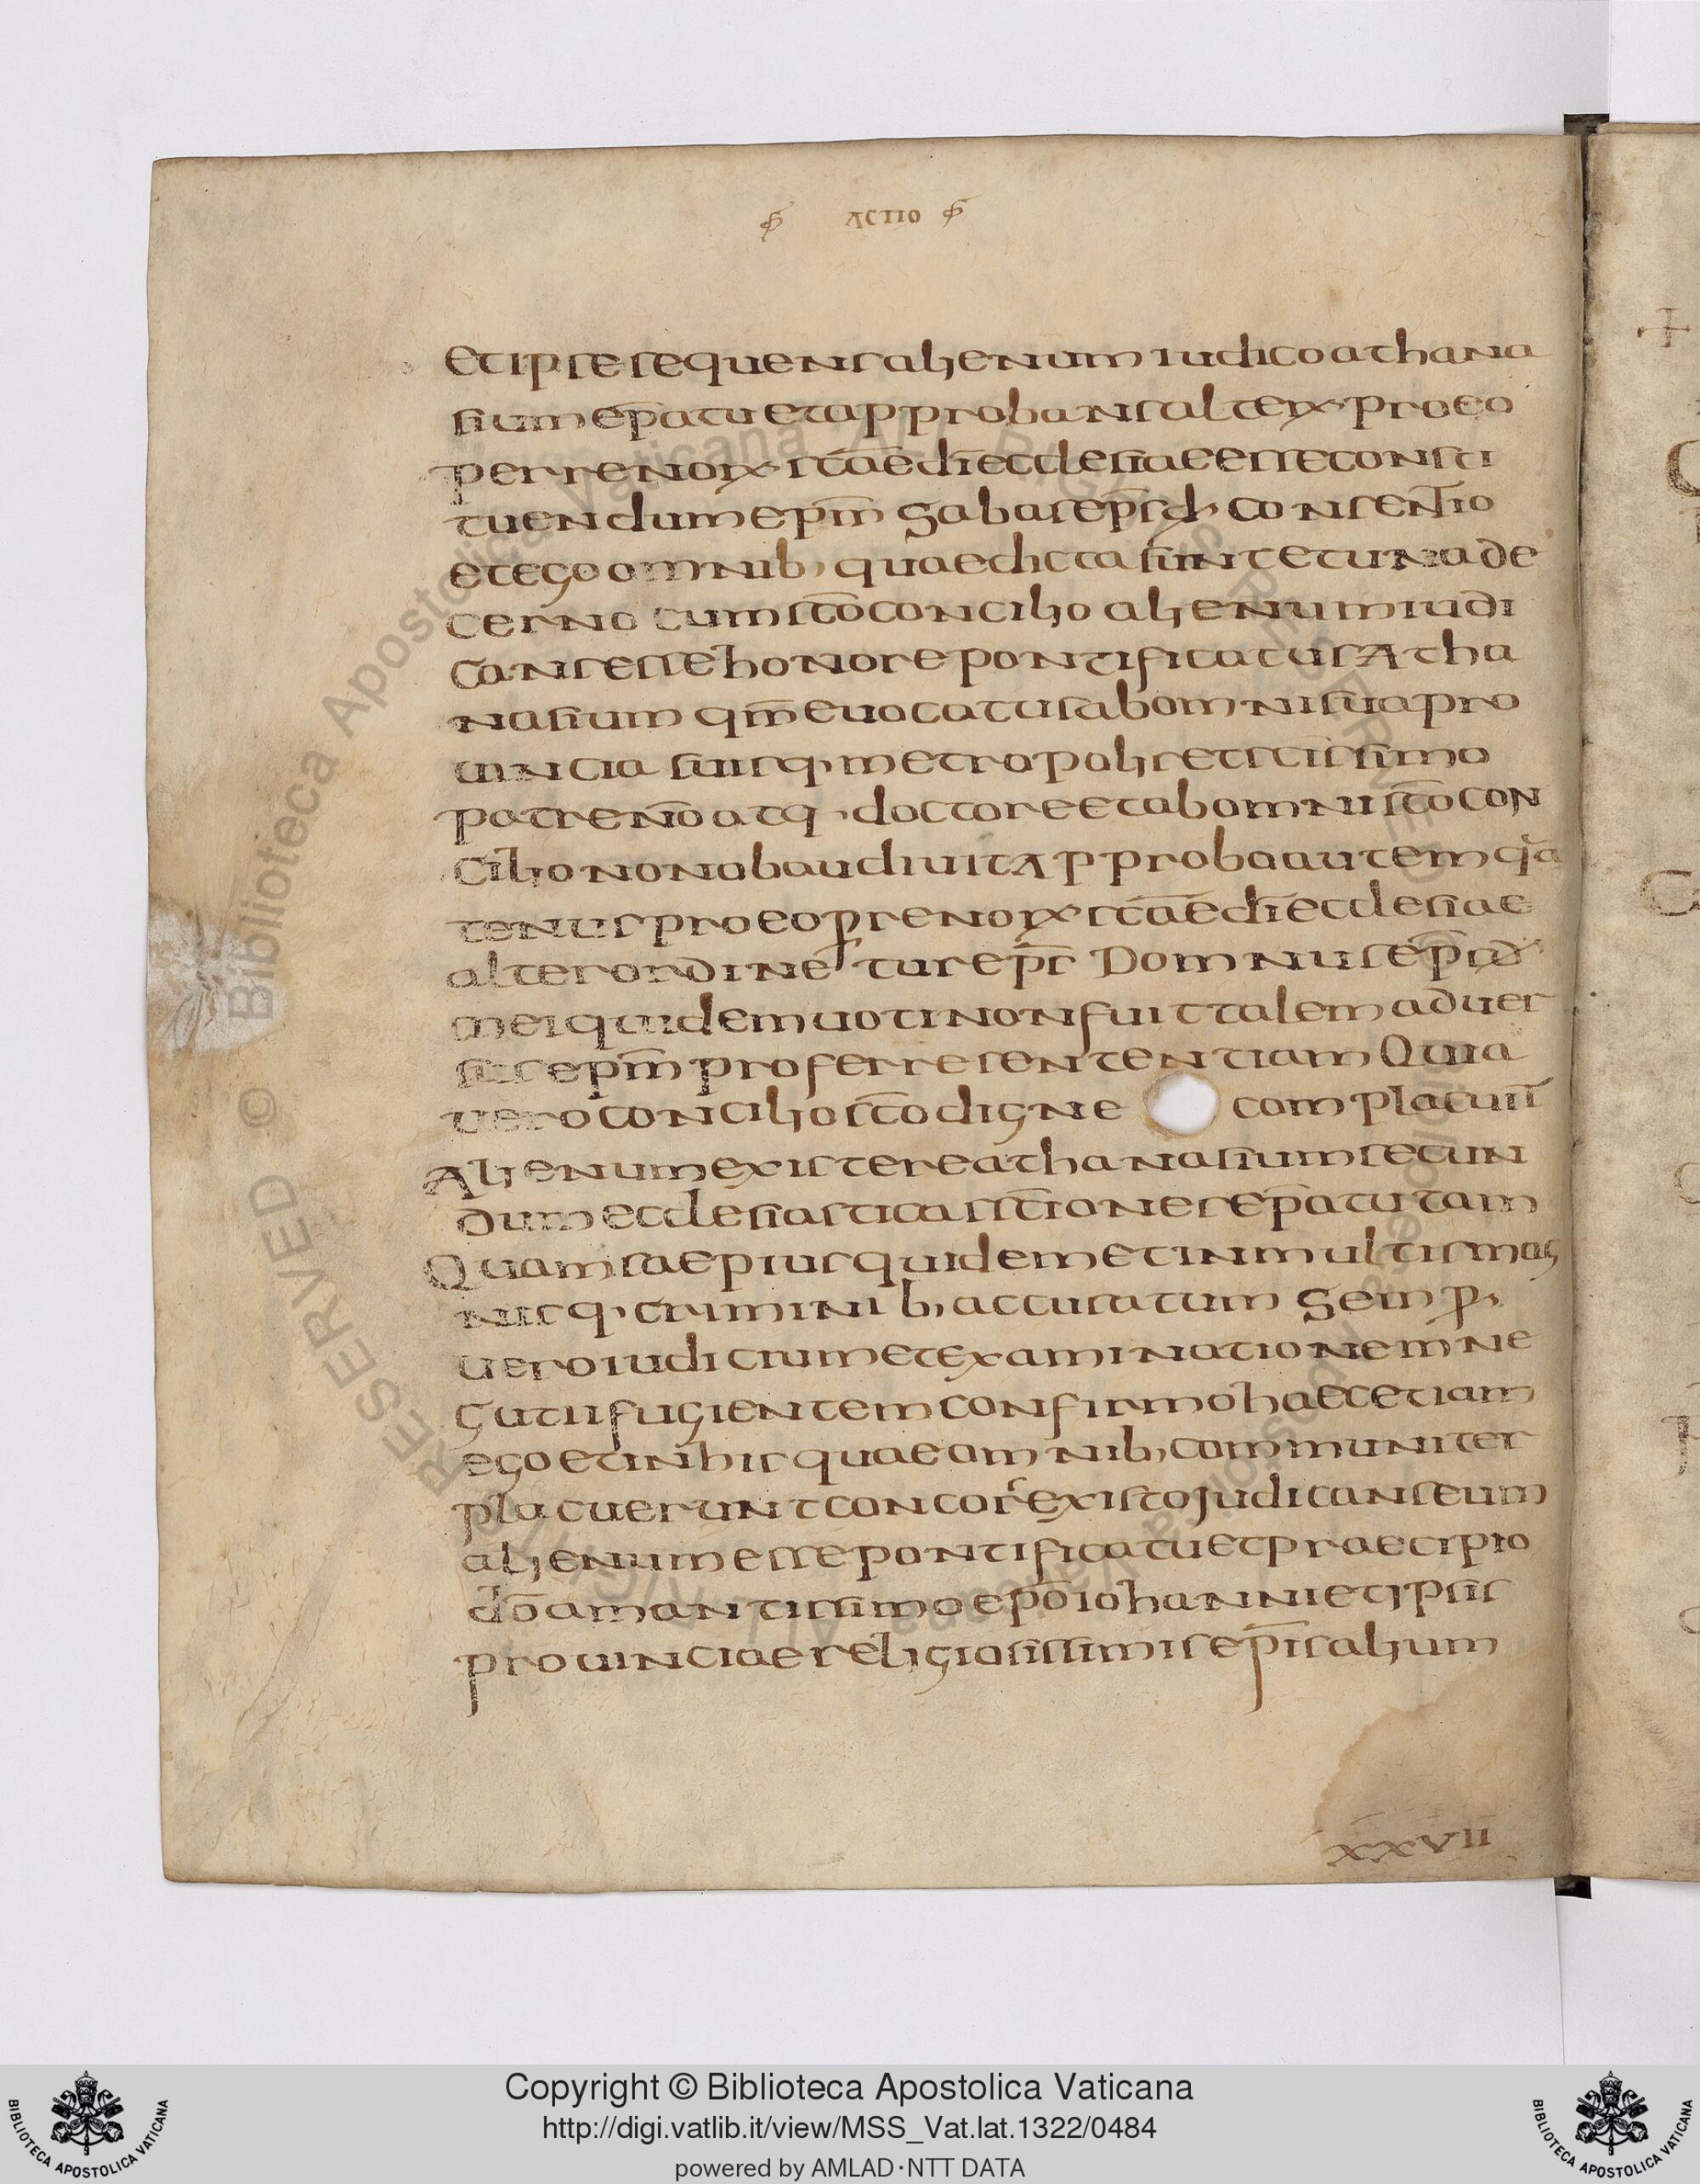 ACTIO
et ipse sequens alienum iudico athana
sium ep̄atu et approbans alterx pro eo
perrenorx sc̄ae dī ecclesiae esse consti
tuendum epm̄ Sabas ep̄s d. consentio
et ego omnib, quae dicta sunt et una de
cerno cum sc̄o concilio alienum iudi
cans esse honore pontificatus Atha
nasium qm̄ euocatus ab omni sua pro
uincia suisq. metropolis et sc̄issimo
patre nō atq. doctore et ab omni sc̄o con
cilio non obaudiuit Approba autem qa
tenus pro eo p renorx sc̄ae dī ecclesiae
alter ordine tur ep̄s Domnus ep̄s d
mei quidem uoti non fuit talem aduer
sus epm̄ proferre sententiam Quia
uero concilio sc̄o digne complacuit
Alienum existere athanasium secun
dum ecclesiasticas sc̄iones ep̄atu tam
Quam saepius quidem et in multis mag
nisq. criminib, accusatum Semp
uero iudicium et examinationem ne
gutii fugientem confirmo haec etiam
ego et in his quae omnib, communiter
placuerunt concor existo Judicans eum
alienum esse pontificatu et praecipio
dō amantissimo epō iohanni et ipsis
prouinciae religiosissimis ep̄is alium
XXVII
Copyright © Biblioteca Apostolica Vaticana
http://digi.vatlib.it/view/MSS_Vat.lat.1322/0484
powered by AMLAD·NTT DATA
BIBLIOTECA APOSTOLICA VATICANA
BIBLIOTECA APOSTOLICA VATICANA